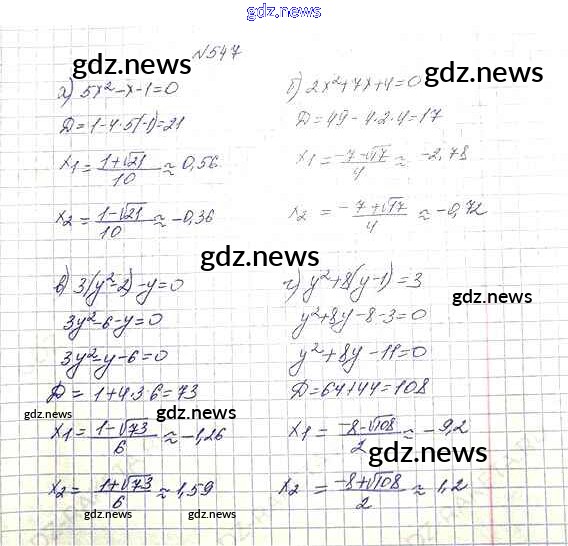 gdz.news
N547
gdz.news
gdz.news
а) 5x²-x-1=0
D=1-4·5(-1)=21
x₁=(1+√21)/10≈0,56
x₂=(1-√21)/10≈-0,36
б) 2x²+7x+4=0
D=49-4·2·4=17
x₁=(-7-√17)/4≈-2,78
x₂=(-7+√17)/4≈-0,72
gdz.news
в) 3(y²-2)-y=0
3y²-6-y=0
3y²-y-6=0
D=1+4·3·6=73
gdz.news
gdz.news
x₁=(1-√73)/6≈-1,26
x₂=(1+√73)/6≈1,59
gdz.news
gdz.news
г) y²+8(y-1)=3
gdz.news
y²+8y-8-3=0
y²+8y-11=0
D=64+44=108
x₁=(-8-√108)/2≈-9,2
gdz.news
x₂=(-8+√108)/2≈1,2
gdz.news